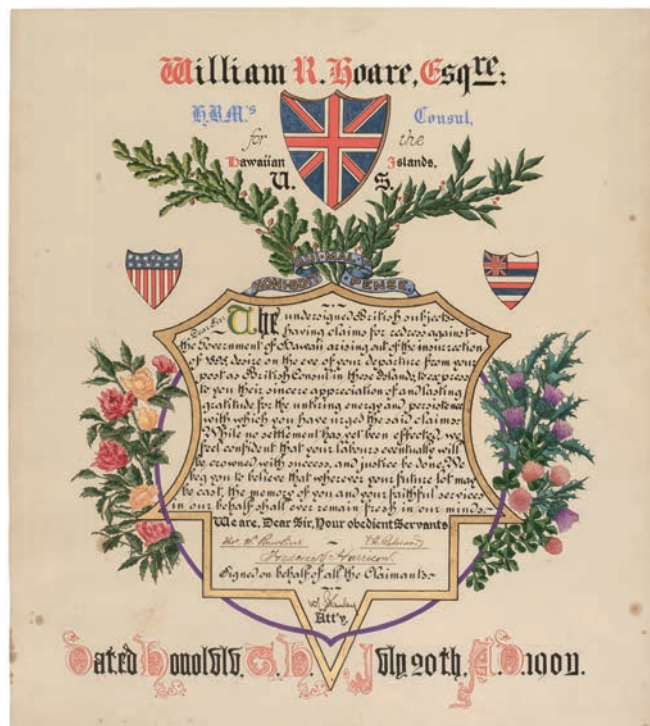 William R. Hoare, Esqre:
H.B.M.'s Consul,
for the
Hawaiian Islands,
U. S.
HONI·SOIT·QUI·MAL·Y·PENSE.
Dear Sir: The undersigned British subjects
having claims for redress against
the Government of Hawaii arising out of the insurrection
of 1895, desire on the eve of your departure from your
post as British Consul in these Islands, to express
to you their sincere appreciation of and lasting
gratitude for the untiring energy and persistence
with which you have urged the said claims.
While no settlement has yet been effected, we
feel confident that your labours eventually will
be crowned with success, and justice be done. We
beg you to believe that wherever your future lot may
be cast, the memory of you and your faithful services
in our behalf shall ever remain fresh in our minds.
We are, Dear Sir, Your obedient Servants
Frederick Harrison.
Signed on behalf of all the Claimants.
Att'y.
Dated Honolulu, T. H. July 20th, A. D. 1901.